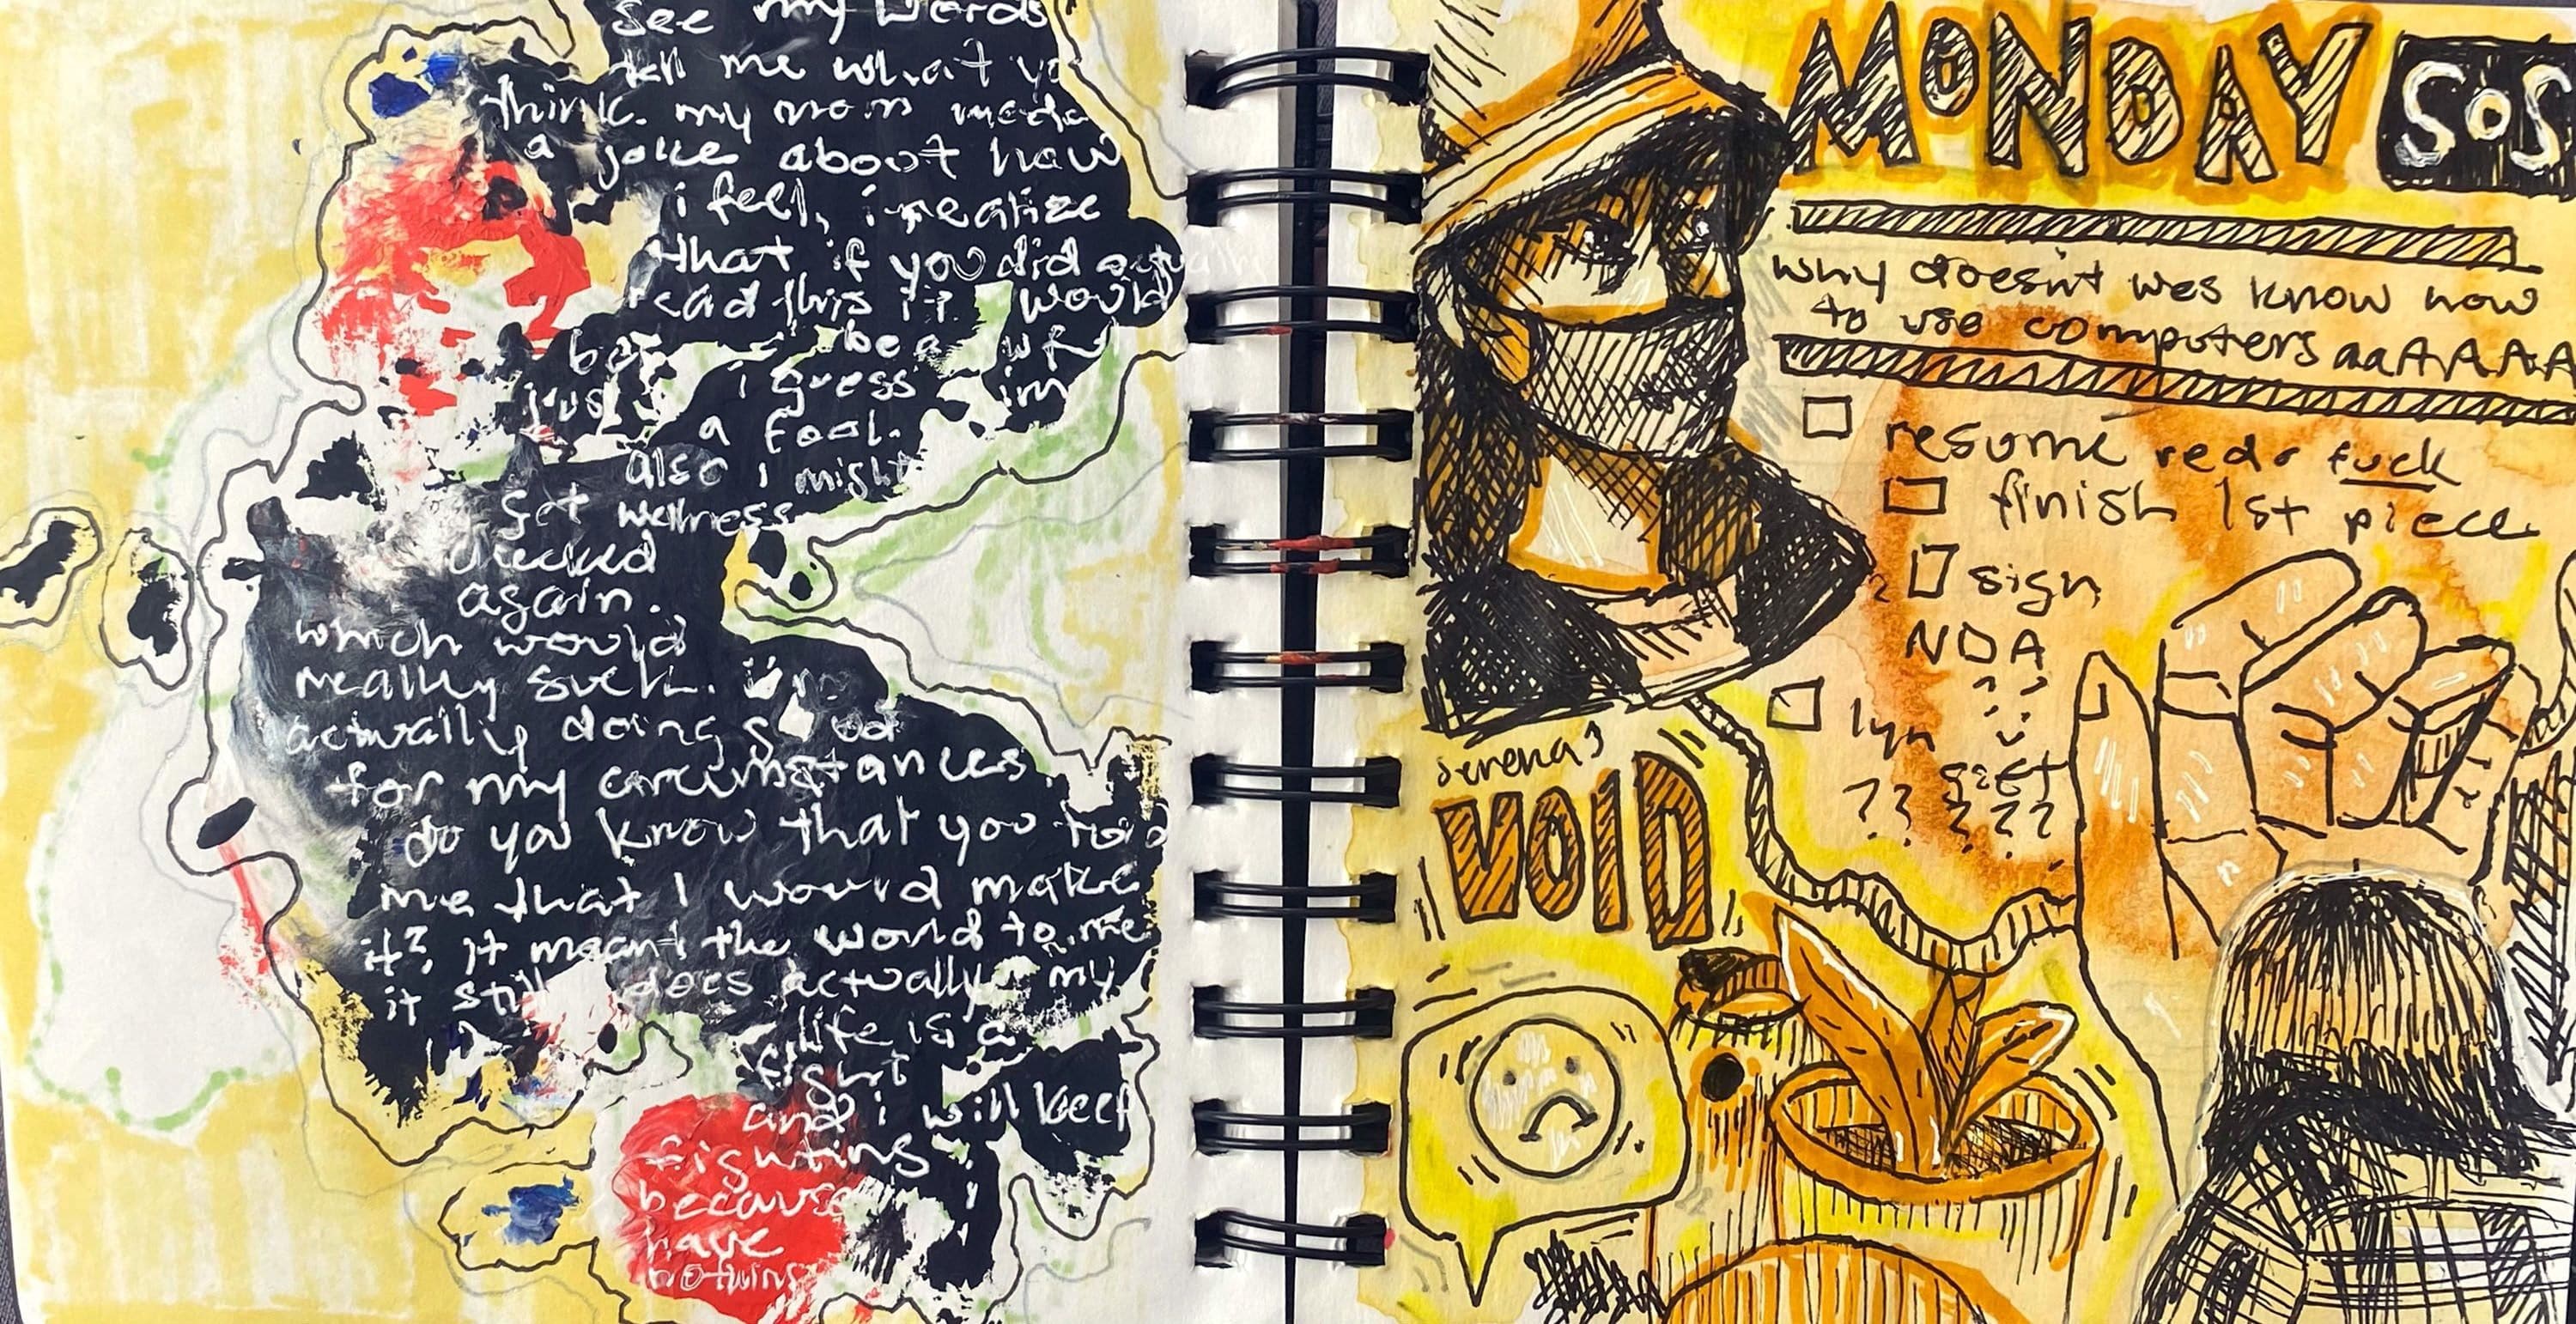 see my words
tell me what yo
think. my mom made
a joke about how
i feel, i realize
that if you did actually
read this it would
be a
just i guess im
a fool.
also i might
get wellness
checked
again.
which would
really suck. i'm
actually doing good
for my circumstances
do you know that you told
me that I would make
it? it meant the world to me
it still does actually. my
life is a
fight
and i will keep
fighting
because i
have
nothing
MONDAY SOS
why doesn't wes know how
to use computers aaAAAA
resume redo fuck
finish 1st piece
sign
NDA
??
lyn
????
serena's
VOID